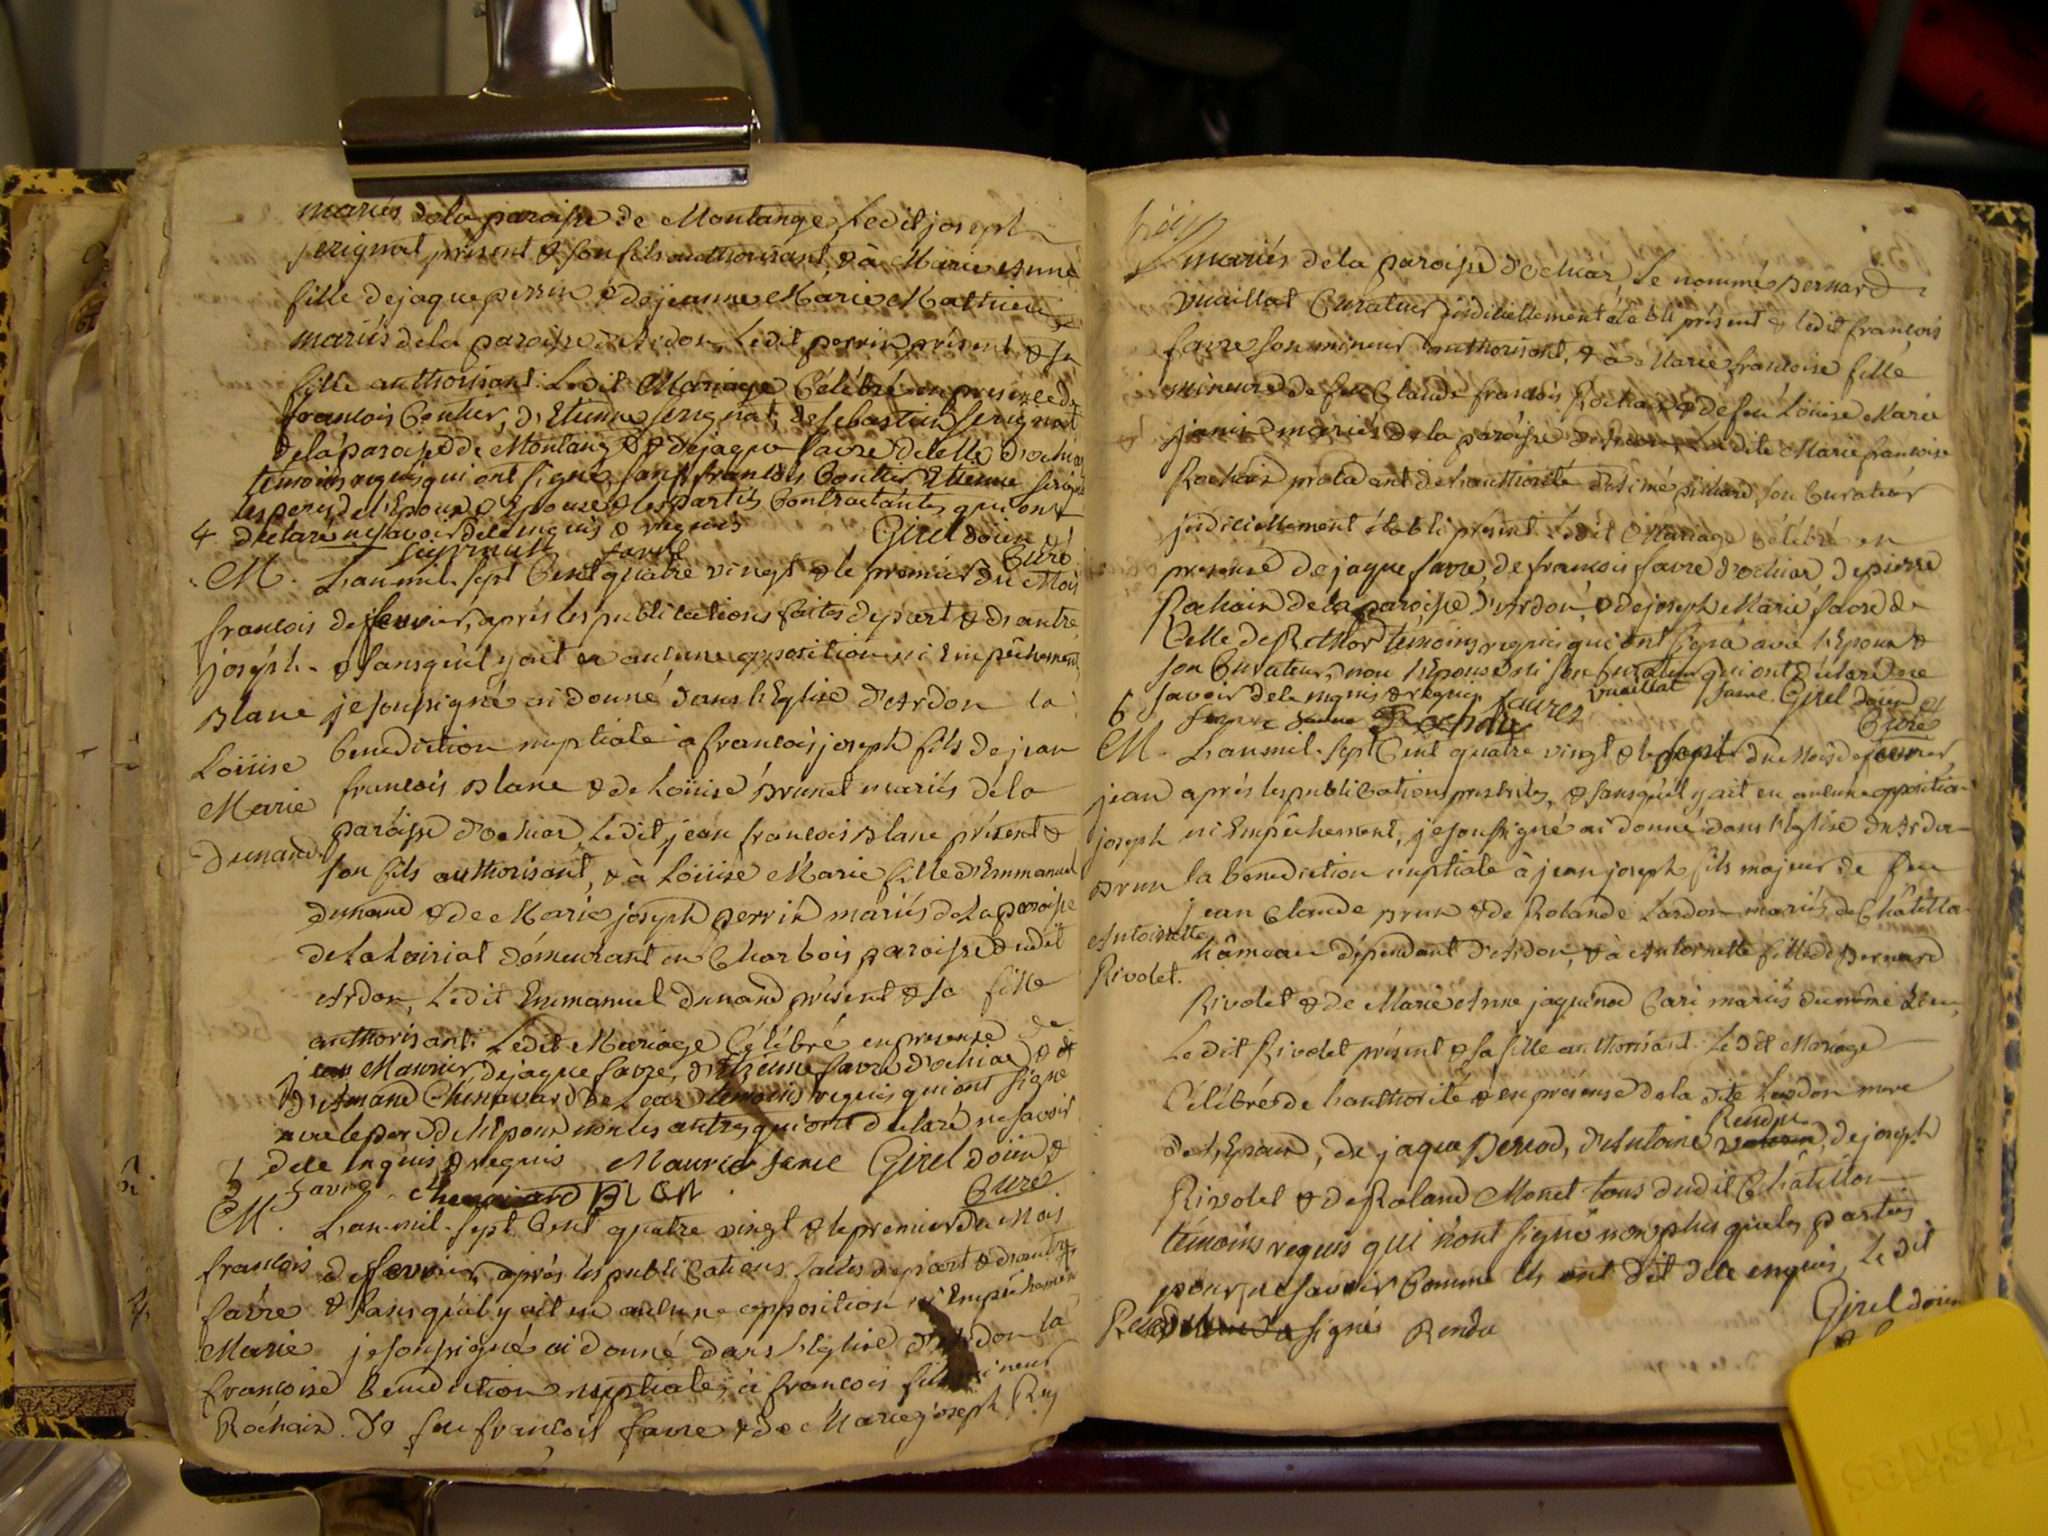 mariés de la paroisse de Montange, Ledit joseph
serignat présent & son fils authorisant, & à Marie Anne
fille de jaque perrin & de jeanne Marie Mathieu
mariés de la paroisse d'Ardon, Ledit perrin présent & sa
fille authorisant. Ledit Mariage Célébré en presence de
francois Coutier, d'Etienne serignat, de sebastien serignat
de la paroisse de Montange & de jaque favre de celle d'ochiaz
temoins requis qui ont signé sauf francois Coutier Etienne
les peres de l'Epoux & Epouse & les parties Contractantes qui ont
4 declaré ne savoir de ce enquis & requis Girel doien &
favre Curé
M. L'an mil sept Cent quatre vingt & le premier du Mois
francois de fevrier, après les publications faites de part & d'autre
joseph & sans qu'il y ait eu aucune opposition ni Empêchement,
Blanc je soussigné ai donné dans l'Eglise d'Ardon la
Loüise benediction nuptiale à francois joseph fils de jean
Marie francois Blanc & de Loüise Brunet mariés de la
Dunand paroisse d'Ochiaz, Ledit jean francois Blanc présent &
son fils authorisant, & à Loüise Marie fille d'Emmanuel
Dunand & de Marie joseph perrin mariés de la paroisse
de Lalairiat demeurant en Charbois paroisse dudit
Ardon, Ledit Emmanuel Dunand présent & sa fille
authorisant. Ledit Mariage Célébré en presence de
jean Maurier, de jaque favre, d'Etienne favre d'ochiaz & de
d'Amand Chenavard de temoins requis qui ont signé
avec le pere de l'Epoux non les autres qui ont declaré ne savoir
5 de ce enquis & requis Maurier favre Girel doien &
favre Chenavard Curé
M. L'an mil sept Cent quatre vingt & le premier du Mois
francois de fevrier, après les publications faites de part & d'autre,
favre & sans qu'il y ait eu aucune opposition ni Empêchement
Marie je soussigné ai donné dans l'Eglise d'Ardon la
francoise benediction nuptiale à francois fils mineur
Rochaix de feu francois favre & de Marie joseph Rey
mariés de la paroisse d'Ochiaz, Le nommé Bernard
vuaillat Curateur judiciellement établi présent & ledit francois
favre son mineur authorisant, & à Marie francoise fille
mineure de feu Claude francois Rochaix & de feu Loüise Marie
janin mariés de la paroisse d'Ardon Ladite Marie francoise
Rochaix procedant de l'authorité d'Aimé son Curateur
judiciellement établi présent. Ledit Mariage Célébré en
presence de jaque favre, de francois favre d'ochiaz, de pierre
Rochaix de la paroisse d'Ardon, & de joseph Marie favre de
Celle de temoins requis qui ont signé avec l'Epoux &
son Curateur, & non l'Epouse ni son Curateur qui ont declaré ne
savoir de ce enquis & requis favre vuaillat favre Girel doien &
6 favre Rochaix Curé
M. L'an mil sept Cent quatre vingt & le sept du Mois de fevrier,
jean après les publications prescrites, & sans qu'il y ait eu aucune opposition
joseph ni Empêchement, je soussigné ai donné dans l'Eglise d'Ardon
Brun la benediction nuptiale à jean joseph fils majeur de feu
jean Claude Brun & de Rolande Lardon mariés, de Châtillon
Antoinette hâmeau dépendant d'Ardon, & à Antoinette fille de Bernard
Rivolet. Rivolet & de Marie Anne jaquinod Cari mariés du même Lieu,
Ledit Rivolet présent & sa fille authorisant. Ledit Mariage
Célébré de l'authorité & en présence de la dite Lardon mere
Rendu
de l'Epoux, de jaque Beniod, d'Antoine, de joseph
Rivolet & de Roland Monet tous dudit Châtillon
temoins requis qui n'ont signé non plus que les parties
pour ne savoir Comme ils ont dit de ce enquis, Le dit
Rendu a signés Rendu Girel doien